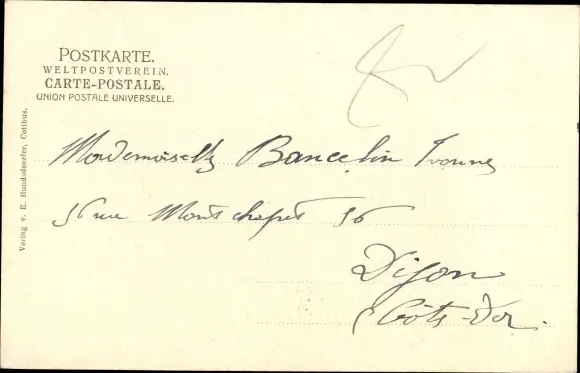 POSTKARTE.
WELTPOSTVEREIN.
CARTE-POSTALE.
UNION POSTALE UNIVERSELLE.
Verlag v. E. Hundsdoerfer, Cottbus.
Mademoiselle Bancelin Yvonne
56 rue Montchapet 56
Dijon
Côte-d'or.